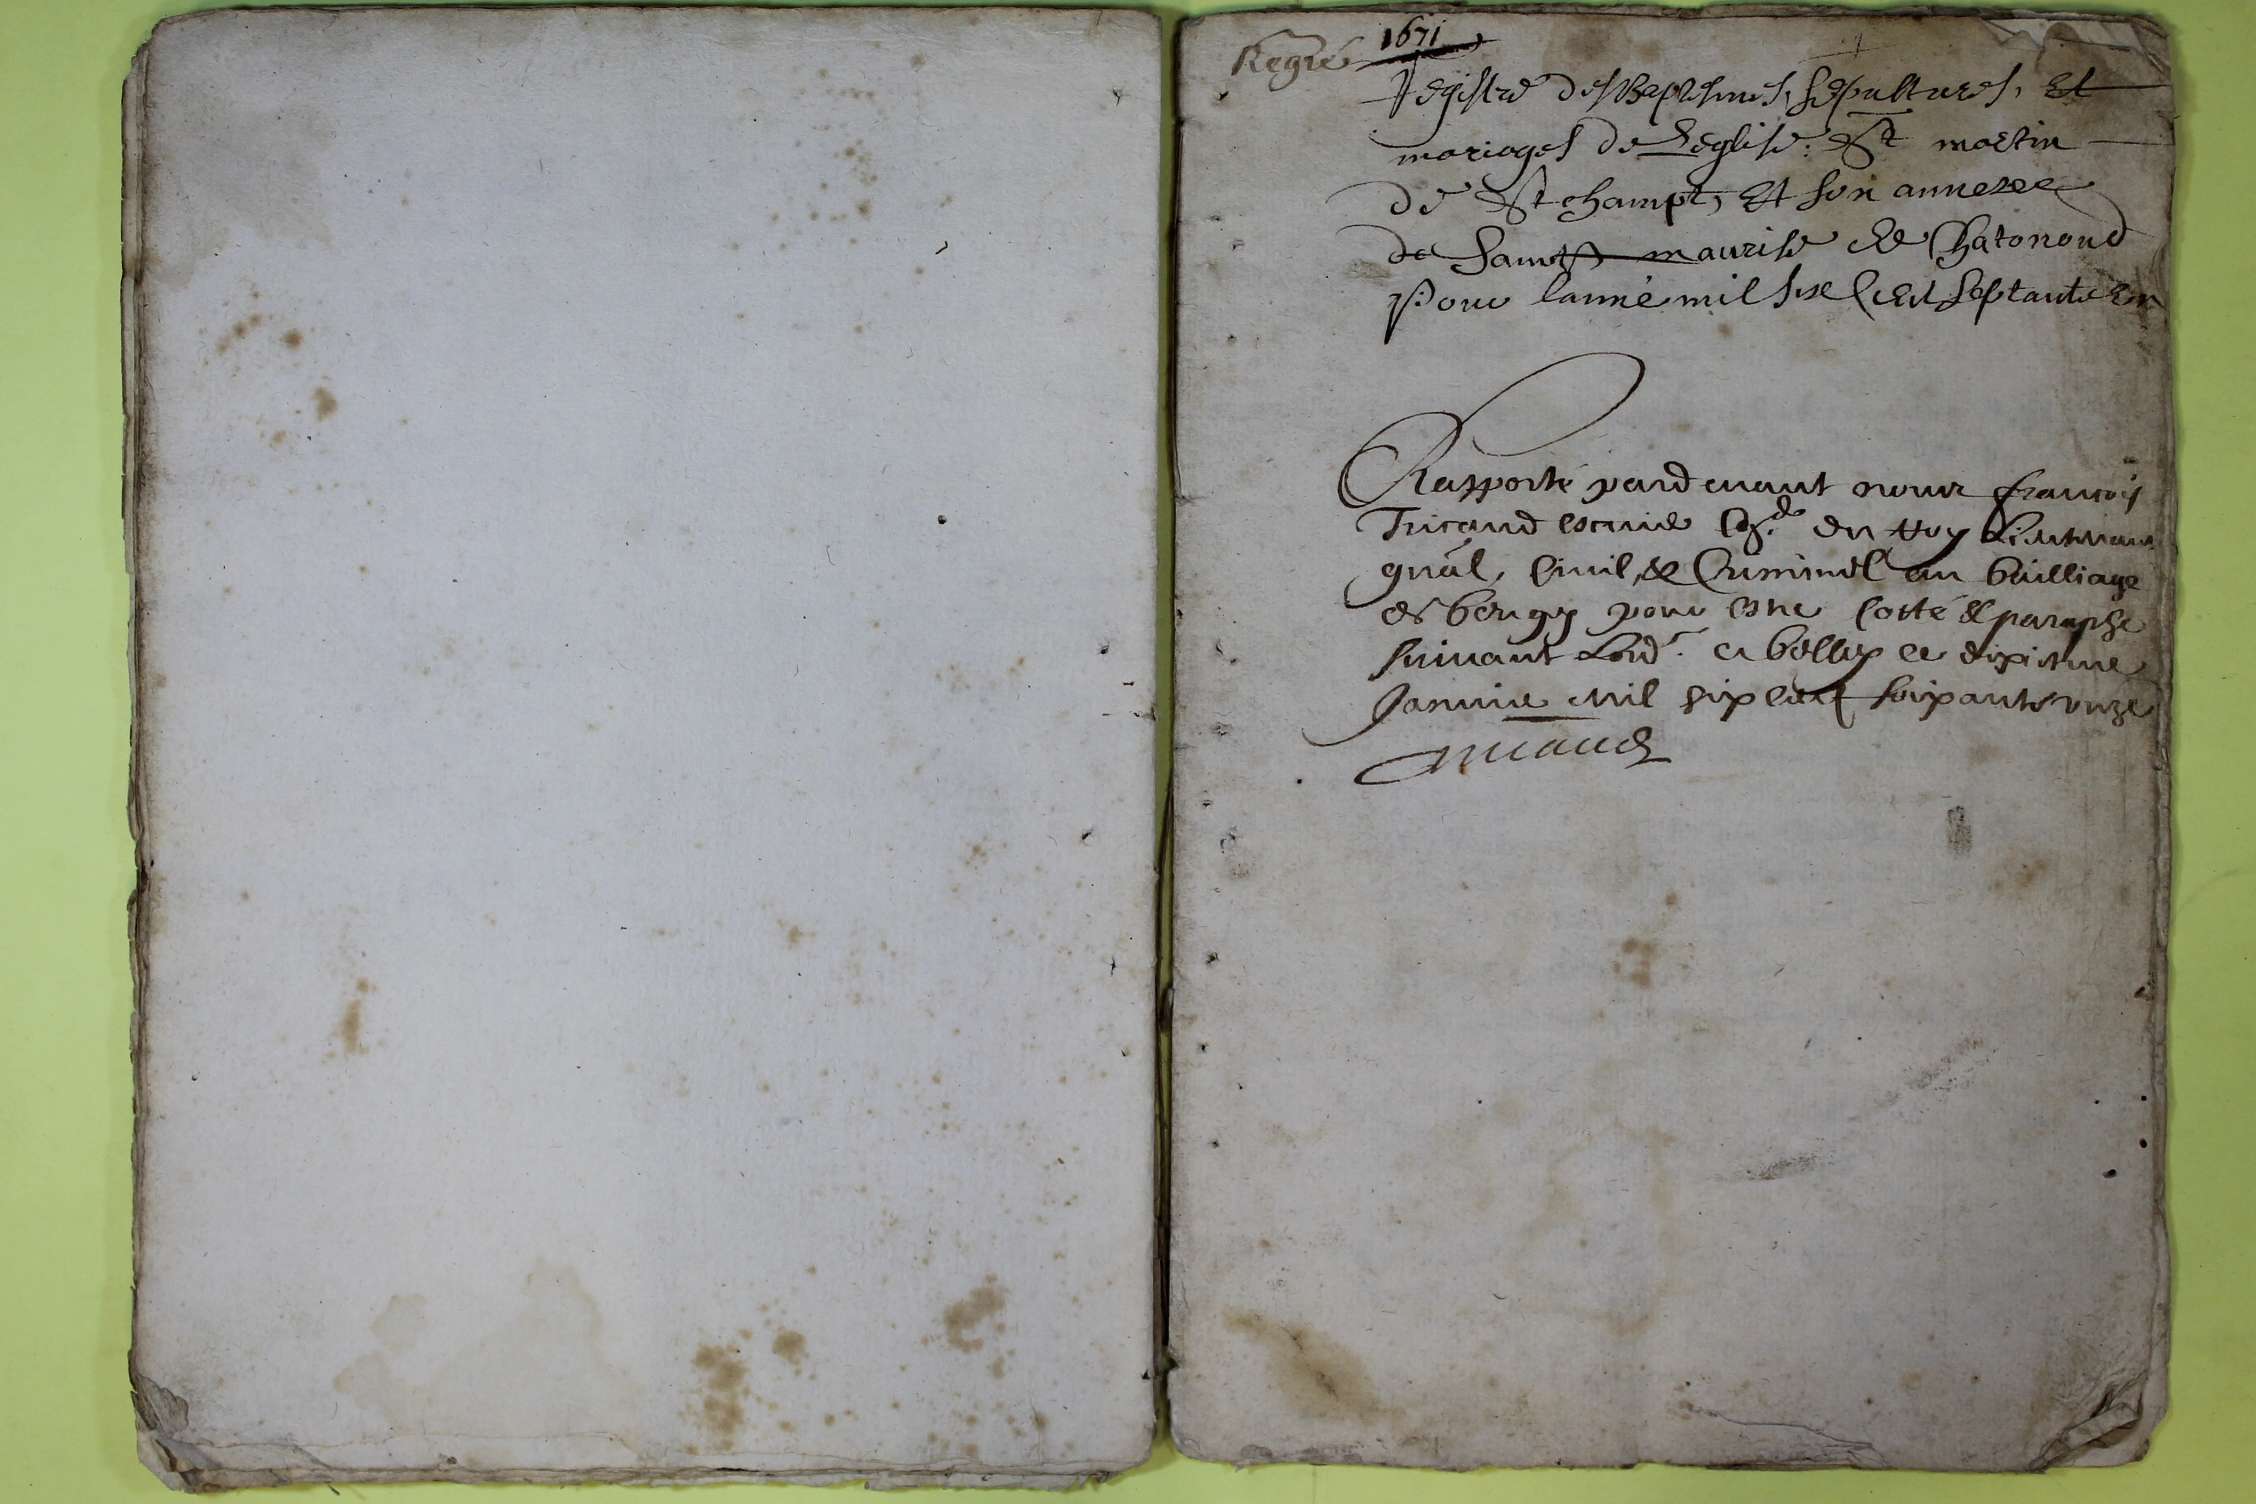 Regré 1671
Registre des Baptesmes, sepultures, Et
mariages de Leglise St martin
de St champt, Et son annexee
de Sainct maurise de Chatonoud
Pour lanné mil six Cent septante Un
Rapporté pardeuant nous françois
Tricaud escuier Con.er du Roy Lieutenant
gnāl, Ciuil, & Criminel au bailliage
de beugey pour estre Cotté & paraphe
suiuant Lord.e a belley ce dixiesme
Januier mil six cent soixante unze
Tricaud